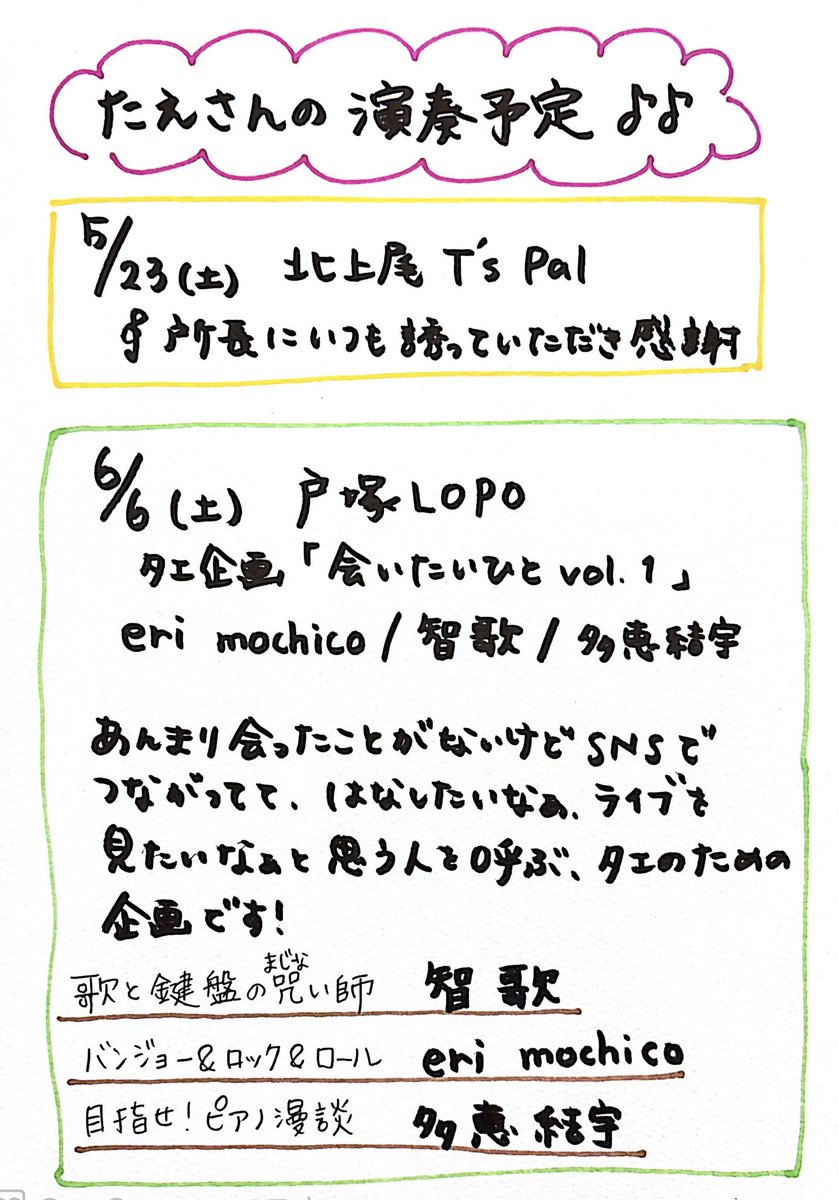 たえさんの 演奏予定 ♪♪
5/23(土) 北上尾 T's Pal
戸所長にいつも誘っていただき感謝
6/6(土) 戸塚LOPO
タエ企画「会いたいひと vol.1」
eri mochico / 智歌 / 多恵結宇
あんまり会ったことがないけどSNSで
つながってて、はなしたいなぁ、ライブを
見たいなぁと思う人を呼ぶ、タエのための
企画です!
まじな
歌と鍵盤の呪い師 智歌
バンジョー&ロック&ロール eri mochico
目指せ!ピアノ漫談 多恵結宇